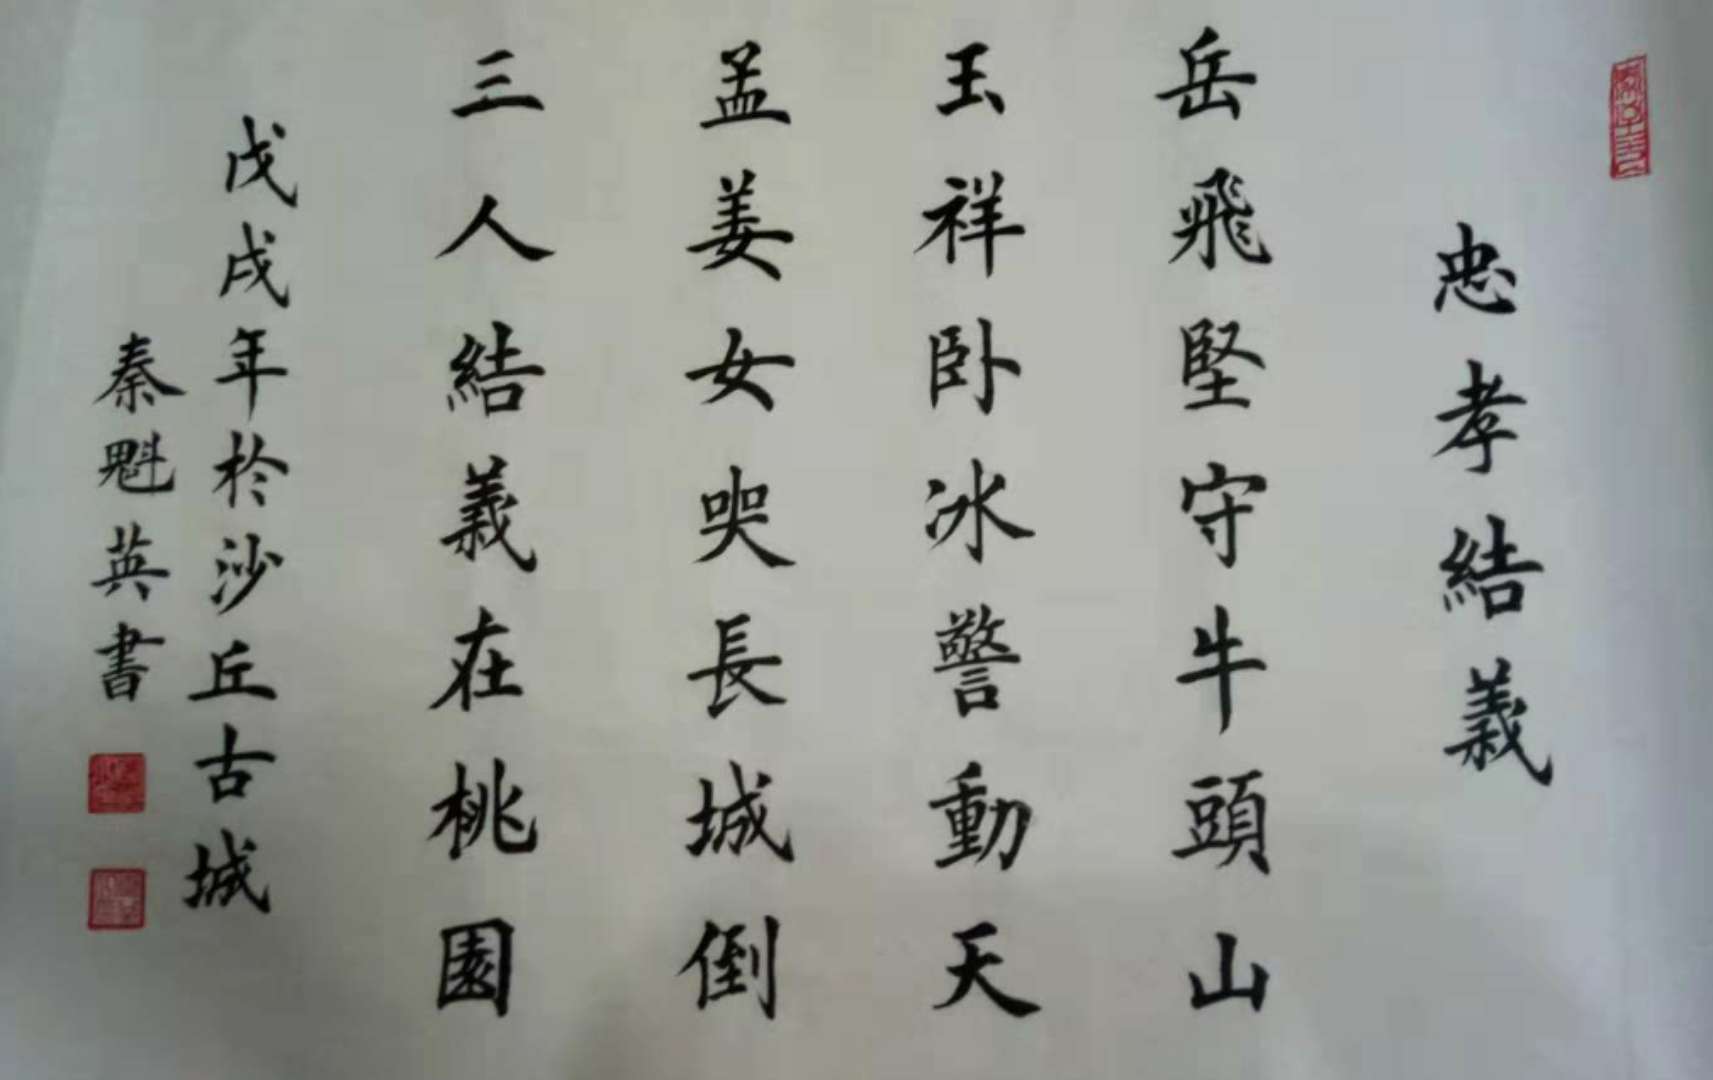 忠孝結義
岳飛堅守牛頭山
玉祥卧冰警動天
孟姜女哭長城倒
三人結義在桃園
戊戌年於沙丘古城
秦魁英書